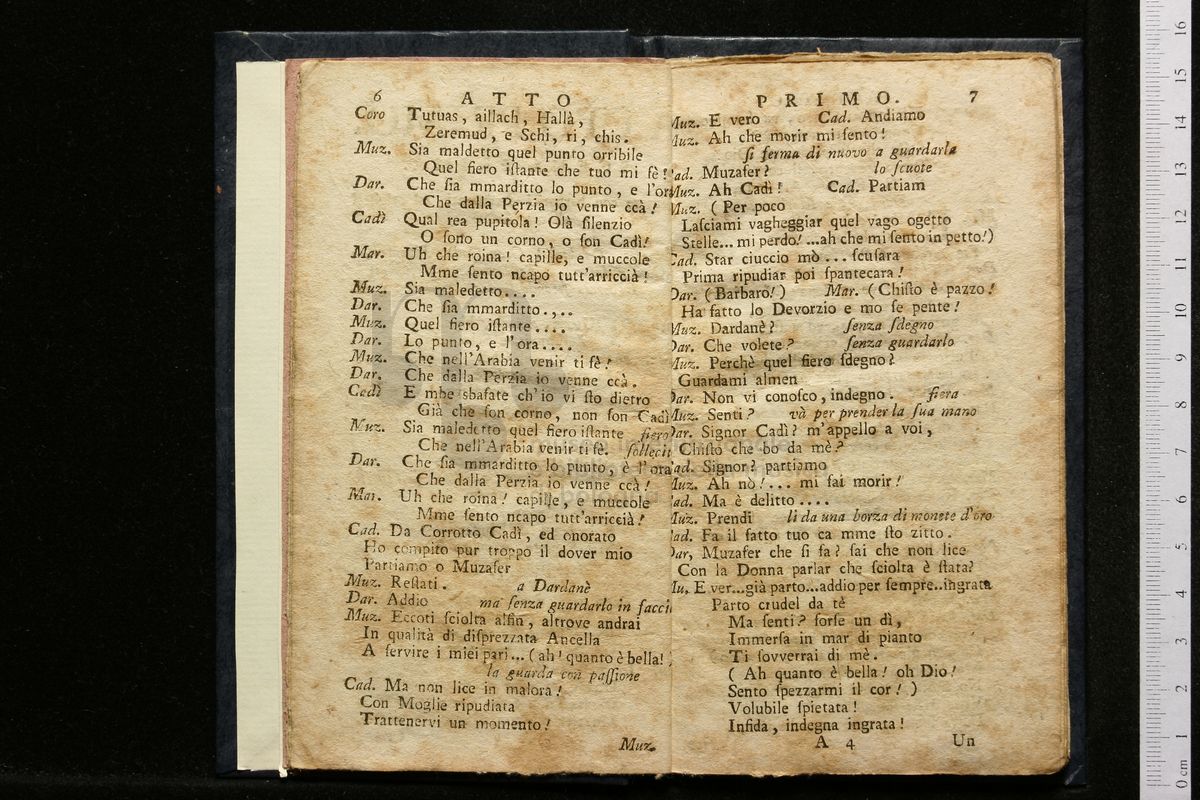 6 ATTO
Coro Tutuas, aillach, Hallà,
Zeremud, e Schi, ri, chis.
Muz. Sia maldetto quel punto orribile
Quel fiero iſtante che tuo mi fè!
Dar. Che ſia mmarditto lo punto, e l'or
Che dalla Perzia io venne ccà!
Cadì Qual rea pupitola! Olà ſilenzio
O ſono un corno, o ſon Cadì!
Mar. Uh che roina! capille, e muccole
Mme ſento ncapo tutt'arriccià!
Muz. Sia maledetto....
Dar. Che ſia mmarditto.,..
Muz. Quel fiero iſtante....
Dar. Lo punto, e l'ora....
Muz. Che nell'Arabia venir ti fè!
Dar. Che dalla Perzia io venne ccà.
Cadì E mbe sbafate ch'io vi ſto dietro
Già che ſon corno, non ſon Cadì
Muz. Sia maledetto quel fiero iſtante fiero
Che nell'Arabia venir ti fè. ſollecit
Dar. Che ſia mmarditto lo punto, è l'ora
Che dalla Perzia io venne ccà!
Mar. Uh che roina! capille, e muccole
Mme ſento ncapo tutt'arriccià!
Cad. Da Corrotto Cadì, ed onorato
Ho compito pur troppo il dover mio
Partiamo o Muzafer
Muz. Reſtati. a Dardanè
Dar. Addio ma ſenza guardarlo in facci
Muz. Eccoti ſciolta alfin, altrove andrai
In qualità di diſprezzata Ancella
A ſervire i miei pari... (ah! quanto è bella!
la guarda con paſſione
Cad. Ma non lice in malora!
Con Moglie ripudiata
Trattenervi un momento!
Muz.
PRIMO. 7
Muz. E vero Cad. Andiamo
Muz. Ah che morir mi ſento!
ſi ferma di nuovo a guardarla
Cad. Muzafer? lo ſcuote
Muz. Ah Cadì! Cad. Partiam
Muz. (Per poco
Laſciami vagheggiar quel vago ogetto
Stelle... mi perdo! ...ah che mi ſento in petto!)
Cad. Star ciuccio mò... ſcuſara
Prima ripudiar poi ſpantecara!
Dar. (Barbaro!) Mar. (Chiſto è pazzo!
Ha fatto lo Devorzio e mo ſe pente!
Muz. Dardanè? ſenza ſdegno
Dar. Che volete? ſenza guardarlo
Muz. Perchè quel fiero ſdegno?
Guardami almen
Dar. Non vi conoſco, indegno. fiera
Muz. Senti? và per prender la ſua mano
Dar. Signor Cadì? m'appello a voi,
Chiſto che bo da mè?
Cad. Signor? partiamo
Muz. Ah nò!... mi fai morir!
Cad. Ma è delitto....
Muz. Prendi li da una borza di monete d'oro
Cad. Fa il fatto tuo ca mme ſto zitto.
Dar, Muzafer che ſi fa? ſai che non lice
Con la Donna parlar che ſciolta è ſtata?
Mu. E ver...già parto...addio per ſempre..ingrata
Parto crudel da tè
Ma ſenti? forſe un dì,
Immerſa in mar di pianto
Ti ſovverrai di mè.
(Ah quanto è bella! oh Dio!
Sento ſpezzarmi il cor!)
Volubile ſpietata!
Infida, indegna ingrata!
A 4 Un
0 cm 1 2 3 4 5 6 7 8 9 10 11 12 13 14 15 16